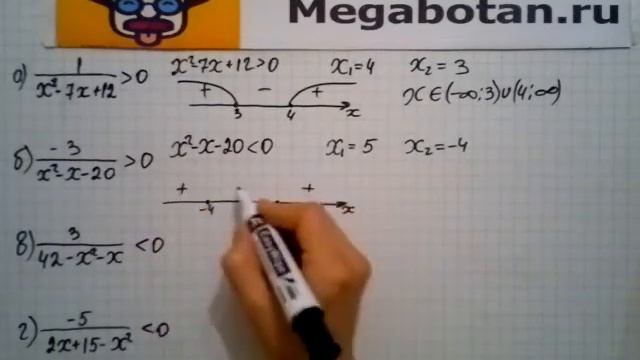 Megabotan.ru
а) 1/(x²-7x+12) > 0 x²-7x+12>0 x₁=4 x₂=3
+ - +
3 4 x
x∈(-∞;3)∪(4;∞)
б) -3/(x²-x-20) > 0 x²-x-20<0 x₁=5 x₂=-4
+ +
-4 x
в) 3/(42-x²-x) < 0
г) -5/(2x+15-x²) < 0